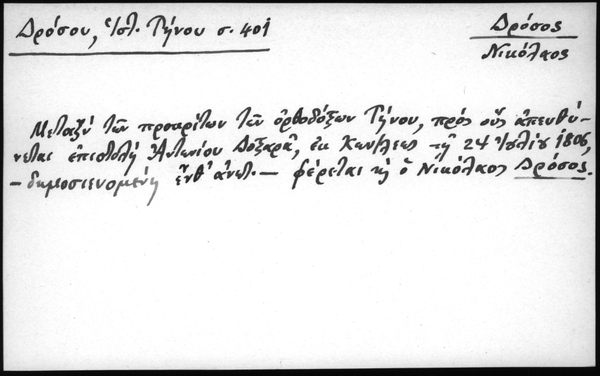 Δρόσου, Ἱστ. Τήνου σ. 401
Δρόσος
Νικόλαος
Μεταξύ τῶν προκρίτων τῶν ὀρθοδόξων Τήνου, πρός οὕς ἀπευθύ-
νεται ἐπιστολή Ἀντωνίου Δοξαρᾶ, ἐκ Κων/λεως τῇ 24 Ἰουλίου 1806,
– δημοσιευομένη ἔνθ' ἀνωτ. – φέρεται κ ὁ Νικόλαος Δρόσος.